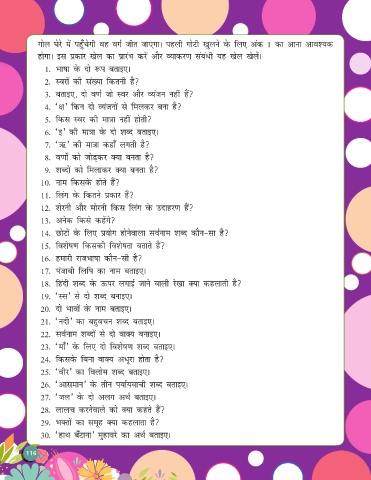 गोल घेरे में पहुँचेगी वह वर्ग जीत जाएगा। पहली गोटी खुलने के लिए अंक 1 का आना आवश्यक
होगा। इस प्रकार खेल का प्रारंभ करें और व्याकरण संबंधी यह खेल खेलें।
1. भाषा के दो रूप बताइए।
2. स्वरों की संख्या कितनी है?
3. बताइए, दो वर्ण जो स्वर और व्यंजन नहीं हैं?
4. ‘क्ष’ किन दो व्यंजनों से मिलकर बना है?
5. किस स्वर की मात्रा नहीं होती?
6. ‘इ’ की मात्रा के दो शब्द बताइए।
7. ‘ऋ’ की मात्रा कहाँ लगती है?
8. वर्णों को जोड़कर क्या बनता है?
9. शब्दों को मिलाकर क्या बनता है?
10. नाम किसके होते हैं?
11. लिंग के कितने प्रकार हैं?
12. शेरनी और मोरनी किस लिंग के उदाहरण हैं?
13. अनेक किसे कहेंगे?
14. छोटों के लिए प्रयोग होनेवाला सर्वनाम शब्द कौन-सा है?
15. विशेषण किसकी विशेषता बताते हैं?
16. हमारी राजभाषा कौन-सी है?
17. पंजाबी लिपि का नाम बताइए।
18. हिंदी शब्द के ऊपर लगाई जाने वाली रेखा क्या कहलाती है?
19. ‘स्स’ से दो शब्द बनाइए।
20. दो भावों के नाम बताइए।
21. ‘नदी’ का बहुवचन शब्द बताइए।
22. सर्वनाम शब्दों से दो वाक्य बनाइए।
23. ‘माँ’ के लिए दो विशेषण शब्द बताइए।
24. किसके बिना वाक्य अधूरा होता है?
25. ‘वीर’ का विलोम शब्द बताइए।
26. ‘आसमान’ के तीन पर्यायवाची शब्द बताइए।
27. ‘जल’ के दो अलग अर्थ बताइए।
28. लालच करनेवाले को क्या कहते हैं?
29. भक्तों का समूह क्या कहलाता है?
30. ‘हाथ बँटाना’ मुहावरे का अर्थ बताइए।
116